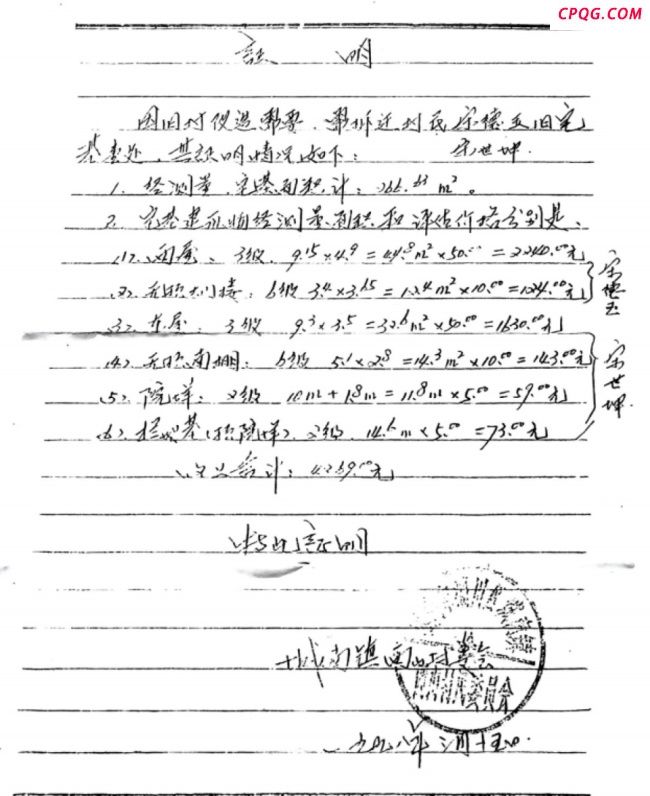 CPQG.COM
証 明
因旧村改造需要,需拆迁村民宋德玉旧宅
宋世坤
基壹处,其说明情况如下:
1. 经测量,宅基面积计:266.63 m²。
2. 宅基建筑物经测量面积和评估价格分别是:
(1)、 3级 9.15×4.9=44.8m²×50.00=2240.00元
(2)、无顶大门楼:6级 3.4×3.65=12.4m²×10.00=124.00元
宋德玉
(3)、 3级 9.3×3.5=32.6m²×50.00=1630.00元
(4)、无顶南棚:6级 5.1×2.8=14.3m²×10.00=143.00元
(5)、院墙:2级 10m+1.8m=11.8m×5.00=59.00元
宋世坤
(6)、 基(顶院墙)2级 14.6m×5.00=73.00元
以上合计:4269.00元
特此証明
城南镇 村委会
一九九八年 月十五日